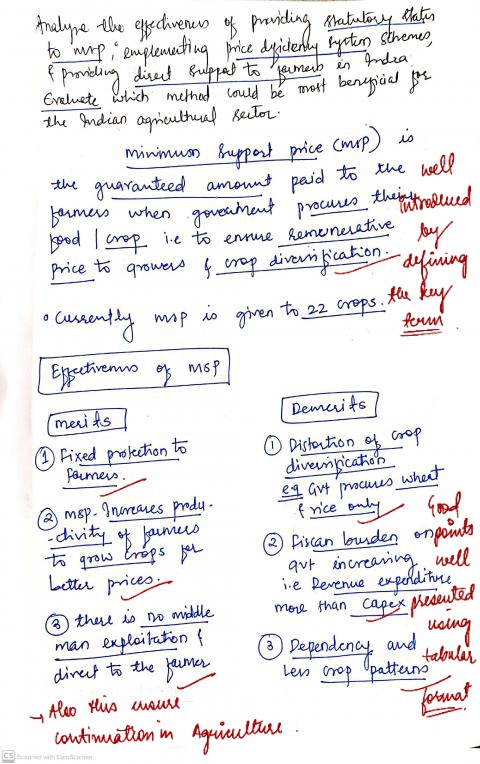 Analyze the effectiveness of providing statutory status
to msp, emplementing price dificiency system schemes,
& providing direct support to farmers in India
Evaluate which method could be most beneficial for
the Indian agricultural sector.
minimum support price (msp) is
the guaranteed amount paid to the
farmers when government procures their
food / crop i.e to ensure remunerative
price to growers & crop diversification.
well
introduced
by
defining
the key
term
• Currently msp is given to 22 crops.
Effectiveness of MSP
merits
① Fixed protection to
farmers.
② msp- Increases produ-
-ctivity of farmers
to grow crops for
better prices.
③ there is no middle
man exploitation &
direct to the farmer
→ Also this ensure
continuation in Agriculture.
Demerits
① Distortion of crop
diversification
eg Gvt procures wheat
& rice only
② Fiscan burden on
gvt increasing
i.e Revenue expenditure
more than capex
③ Dependency and
Less crop patterns
Good
points
well
presented
using
tabular
format
CS Scanned with CamScanner